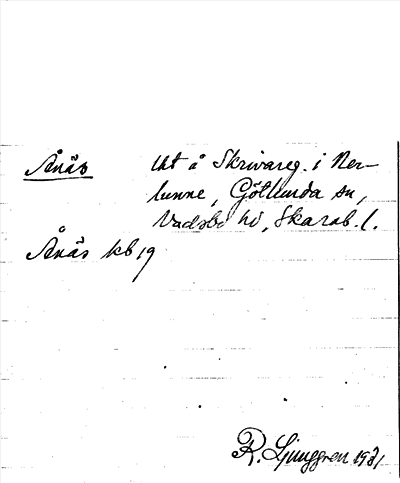 Ånäs Uht å Skrivareg. i Ner-
lunne, Götlunda sn,
Vadsbo hd, Skarab. l.
Ånäs kb 19
R. Ljunggren 1931